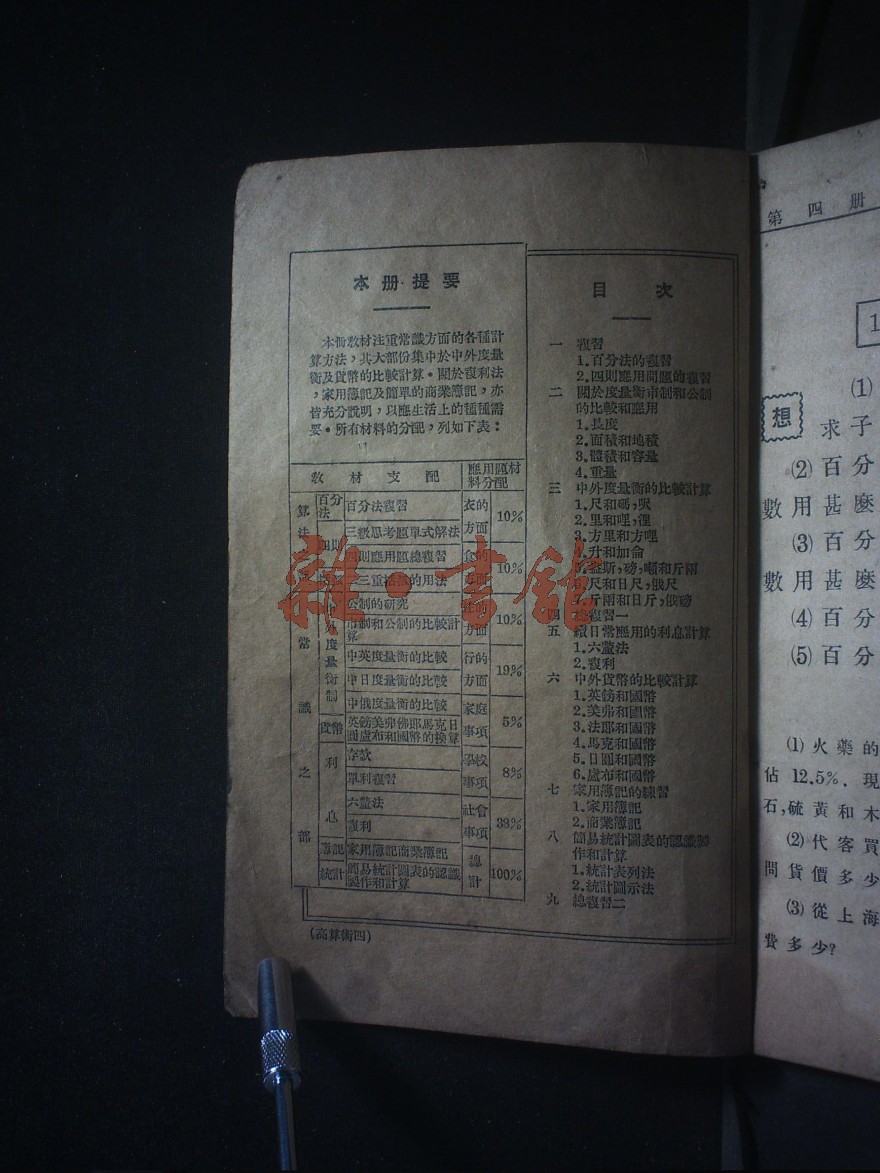 本册提要
本冊教材注重常識方面的各種計
算方法，其大部份集中於中外度量
衡及貨幣的比較計算。關於複利法
，家用簿記及簡單的商業簿記，亦
皆充分說明，以應生活上的種種需
要。所有材料的分配，列如下表：
教材支配 應用題材料分配
算法
百分法 百分法複習
四則 三級思考題單式解法
四則應用題總複習
常識之部
公制的研究
市制和公制的比較計算
度量衡制
中英度量衡的比較
中日度量衡的比較
中俄度量衡的比較
貨幣 英鎊美弗佛郎馬克日圓盧布和國幣的換算
利息 存款
單利複習
六釐法
複利
簿記 家用簿記商業簿記
統計 簡易統計圖表的認識製作和計算
衣的方面 10%
食的方面 10%
住的方面 10%
行的方面 19%
家庭事項 5%
學校事項 8%
社會事項 38%
總計 100%
(高算術四)
目次
一 複習
1.百分法的複習
2.四則應用問題的複習
二 關於度量衡市制和公制
的比較和應用
1.長度
2.面積和地積
3.體積和容量
4.重量
三 中外度量衡的比較計算
1.尺和碼，呎
2.里和哩，浬
3.方里和方哩
4.升和加侖
斤，磅，噸和斤兩
尺和日尺，俄尺
斤兩和日斤，俄磅
四 總複習一
五 續日常應用的利息計算
1.六釐法
2.複利
六 中外貨幣的比較計算
1.英鎊和國幣
2.美弗和國幣
3.法郎和國幣
4.馬克和國幣
5.日圓和國幣
6.盧布和國幣
七 家用簿記的練習
1.家用簿記
2.商業簿記
八 簡易統計圖表的認識製
作和計算
1.統計表列法
2.統計圖示法
九 總複習二
雜·書館
第四册
1
想
(1)
求子
(2)百分
數用甚麼
(3)百分
數用甚麼
(4)百分
(5)百分
(1)火藥的
佔12.5%．現
石，硫黃和木
(2)代客買
問貨價多少
(3)從上海
費多少？